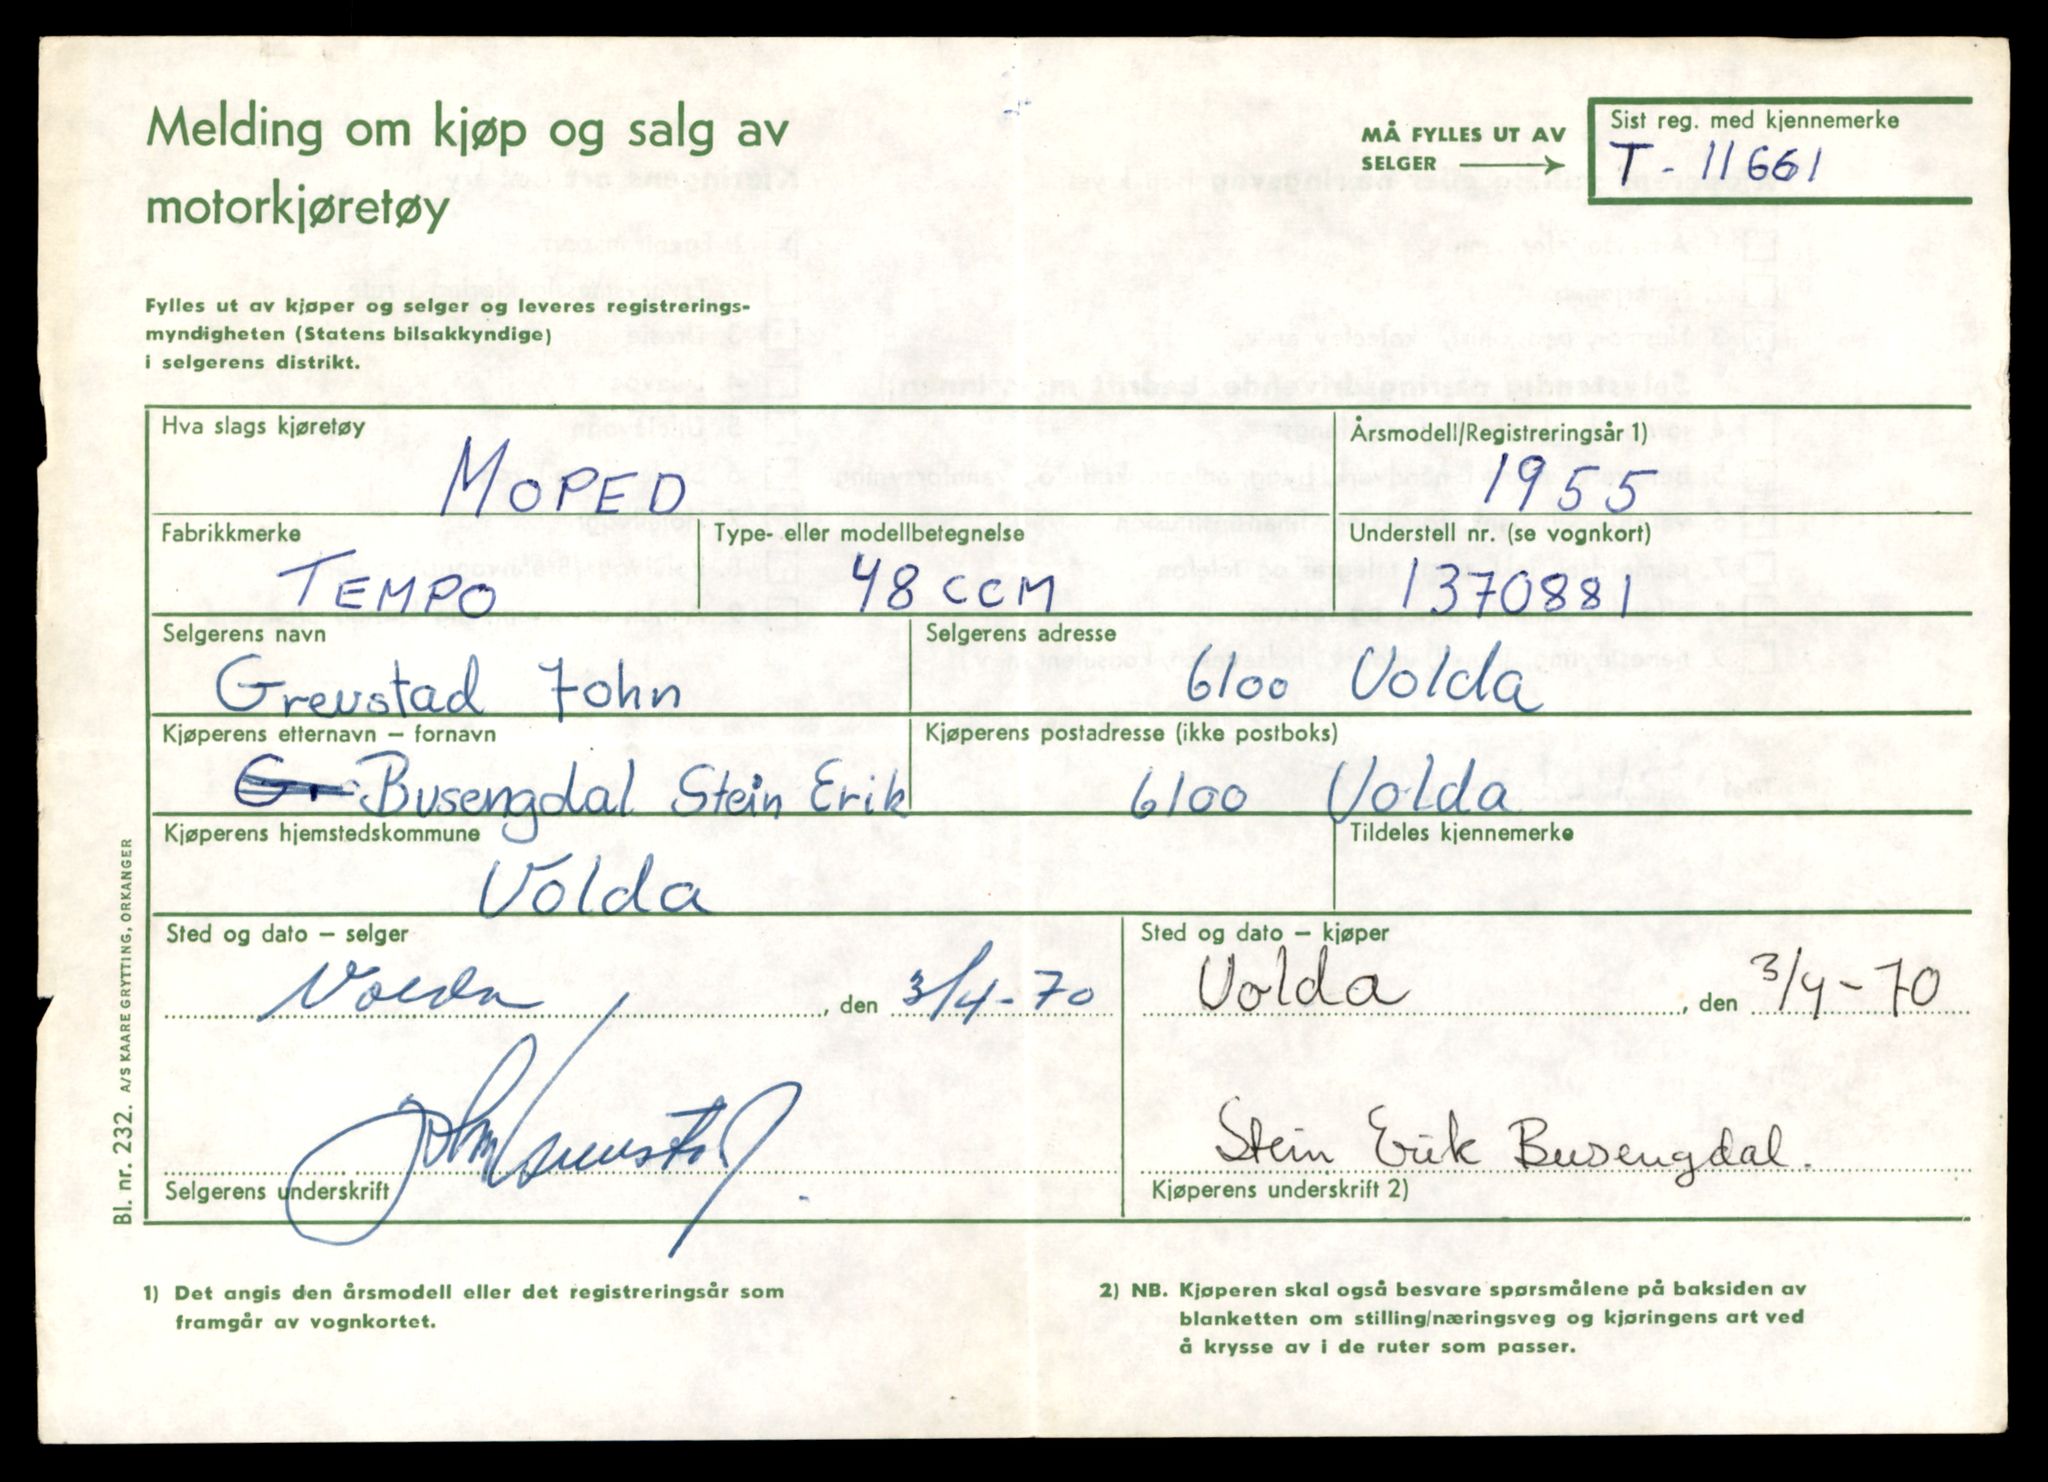 Melding om kjøp og salg av
motorkjøretøy
MÅ FYLLES UT AV
SELGER
Sist reg. med kjennemerke
T - 11661
Fylles ut av kjøper og selger og leveres registrerings-
myndigheten (Statens bilsakkyndige)
i selgerens distrikt.
Hva slags kjøretøy
MOPED
Årsmodell/Registreringsår 1)
1955
Fabrikkmerke
TEMPO
Type- eller modellbetegnelse
48 CCM
Understell nr. (se vognkort)
1370881
Selgerens navn
Grevstad John
Selgerens adresse
6100 Volda
Kjøperens etternavn – fornavn
Busengdal Stein Erik
Kjøperens postadresse (ikke postboks)
6100 Volda
Kjøperens hjemstedskommune
Volda
Tildeles kjennemerke
Sted og dato – selger
Volda, den 3/4-70
Sted og dato – kjøper
Volda, den 3/4-70
John Grevstad
Selgerens underskrift
Stein Erik Busengdal.
Kjøperens underskrift 2)
Bl. nr. 232. A/S KAARE GRYTTING, ORKANGER
1) Det angis den årsmodell eller det registreringsår som
framgår av vognkortet.
2) NB. Kjøperen skal også besvare spørsmålene på baksiden av
blanketten om stilling/næringsveg og kjøringens art ved
å krysse av i de ruter som passer.